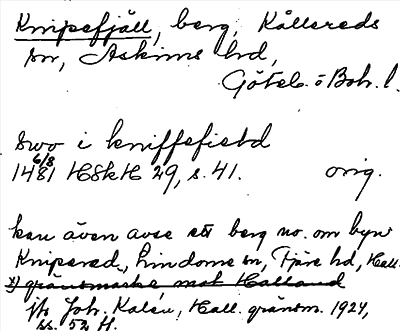 Knipefjäll, berg, Kållereds
sn, Askims hd,
Göteb. o Boh. l.
swo i kniffefield
1481 6/8 HSkH 29, s. 41. orig.
kan även avse ett berg no. om byn
Knipared, Lindome sn, Fjäre hd, Hall.
x) gränsmärke mot Halland
jfr Joh. Kalén, Hall. gränsm. 1924,
ss. 52 ff.